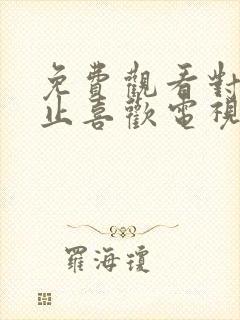 免費觀看對
止喜歡電視
羅海瓊